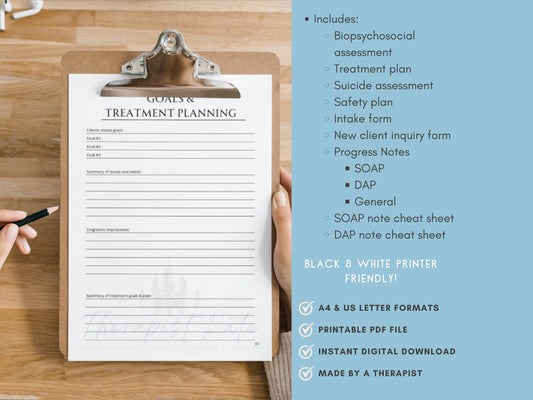 GOALS &
TREATMENT PLANNING
Clients stated goals
Goal #1:
Goal #2:
Goal #3:
Summary of issues and needs
Diagnostic impressions
Summary of treatment goals & plan
Therapist Kate
Includes:
Biopsychosocial
assessment
Treatment plan
Suicide assessment
Safety plan
Intake form
New client inquiry form
Progress Notes
SOAP
DAP
General
SOAP note cheat sheet
DAP note cheat sheet
BLACK & WHITE PRINTER
FRIENDLY!
A4 & US LETTER FORMATS
PRINTABLE PDF FILE
INSTANT DIGITAL DOWNLOAD
MADE BY A THERAPIST